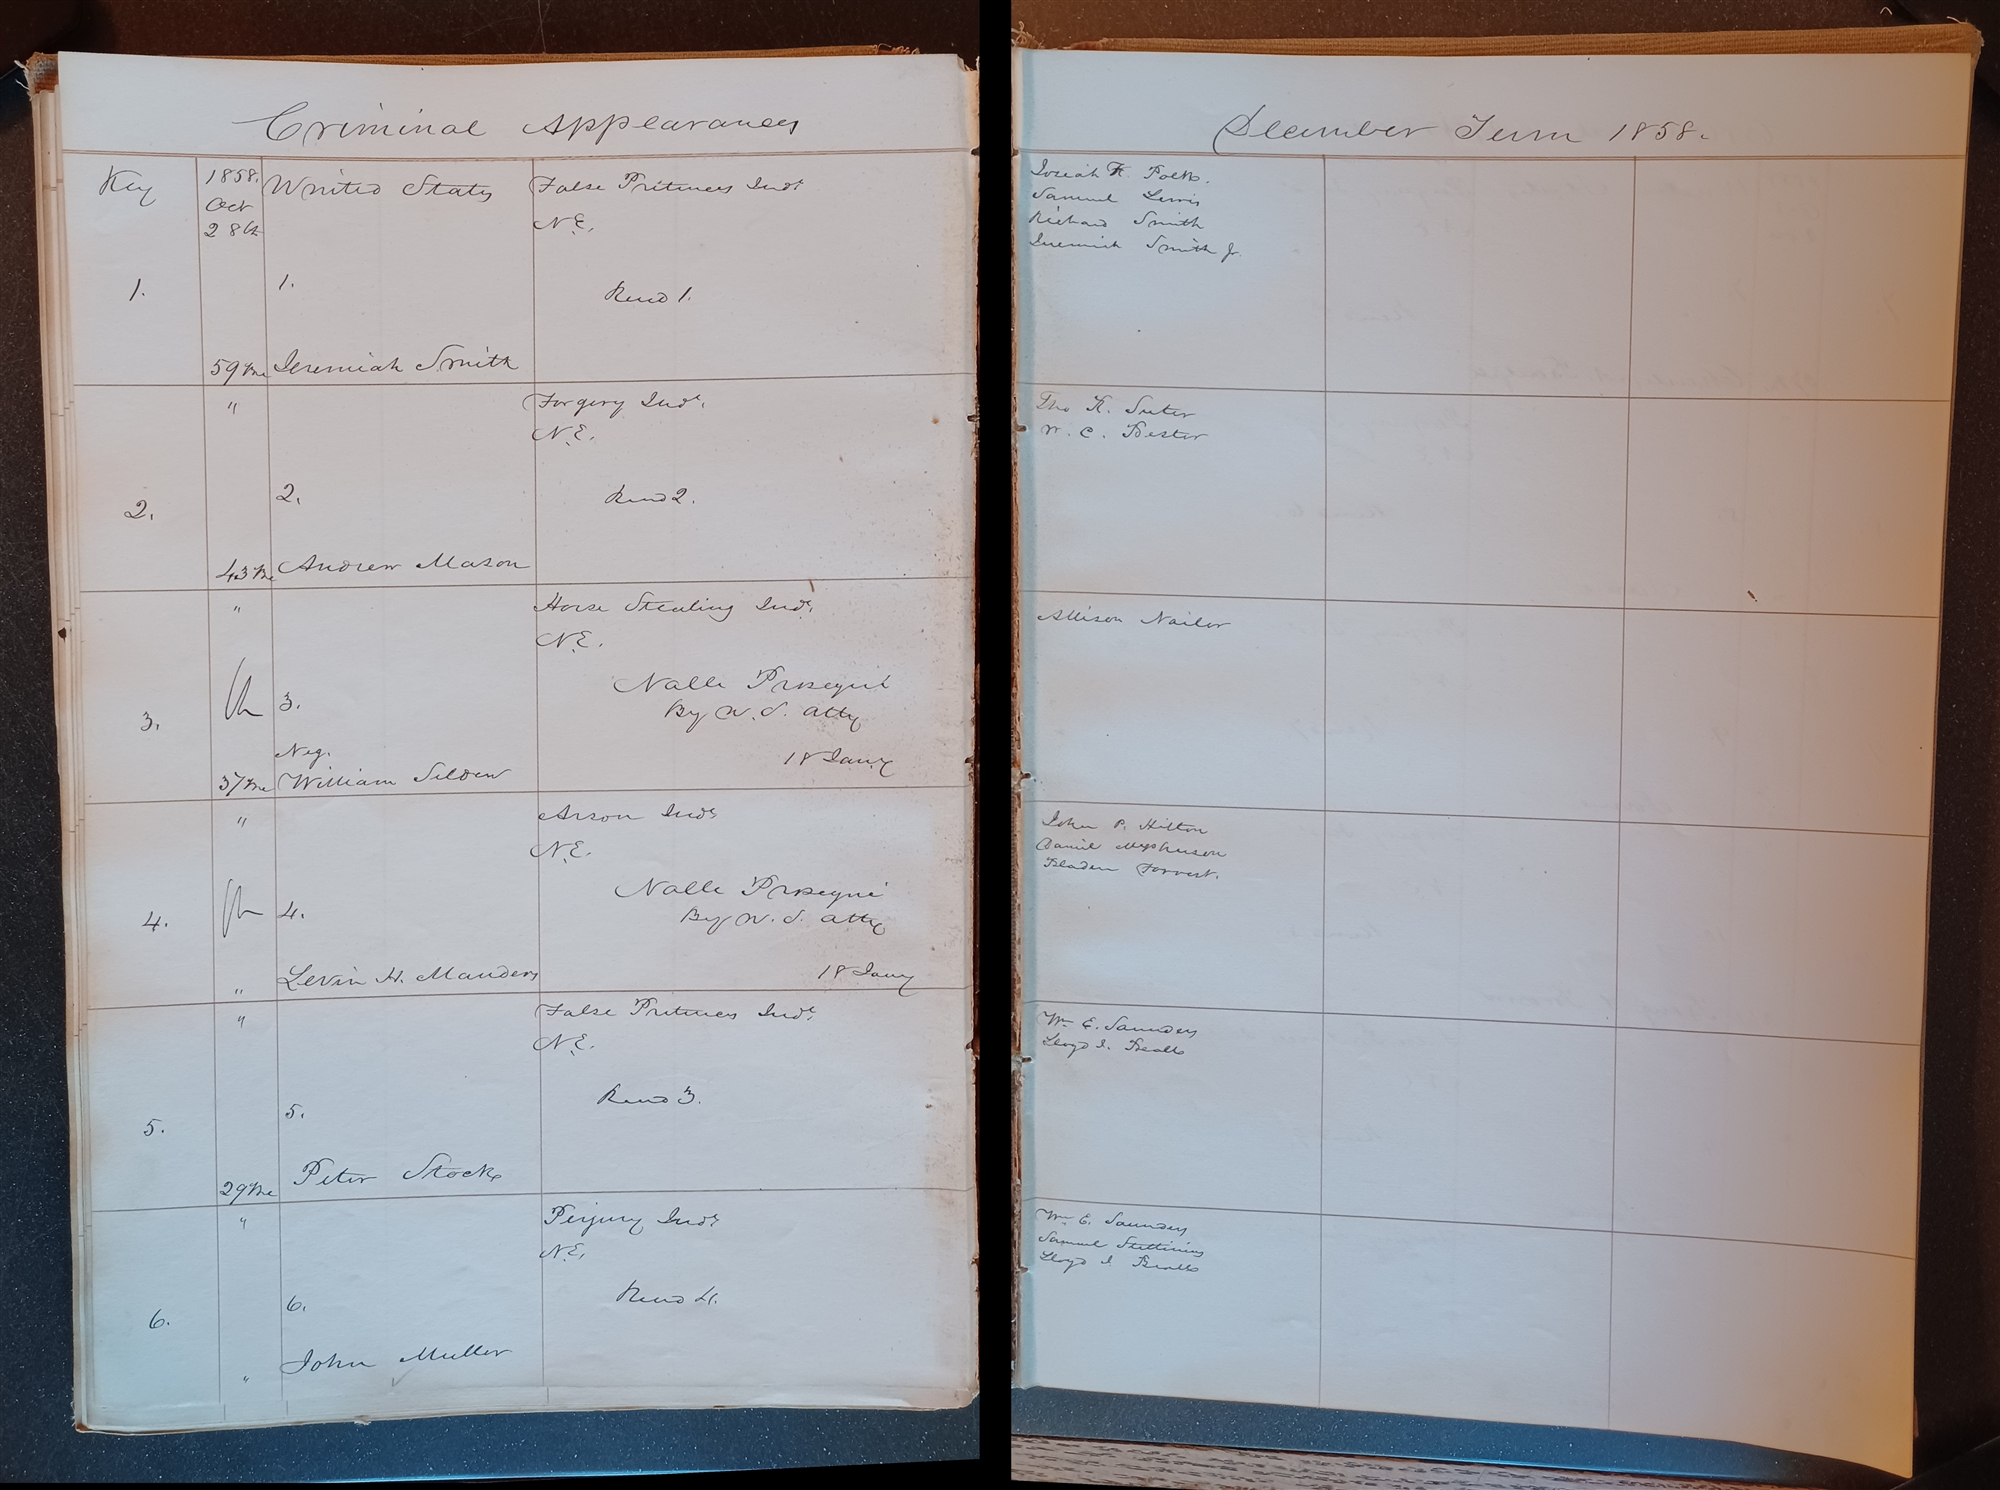 Criminal Appearances
Key
1858.
Oct
28th
United States
False Pretences Indt
N.E.
1.
1.
Rend 1.
59
Jeremiah Smith
"
Forgery Indt.
N.E.
2.
2.
Rend 2.
43
Andrew Mason
"
Horse Stealing Indt.
N.E.
Nolle Prosequi
By U.S. atty
3.
3.
18 Jany
Neg.
37
William Selden
"
Arson Indt
N.E.
Nolle Prosequi
By U.S. atty
4.
4.
18 Jany
"
Levin H. Manders
"
False Pretences Indt.
N.E.
5.
5.
Rend 3.
29
Peter Stocks
"
Perjury Indt
N.E.
6.
6.
Rend 4.
"
John Muller
December Term 1858.
Josiah F. Polk.
Samuel Lewis
Richard Smith
Jeremiah Smith Jr.
Tho K. Suter
W. C. Bestor
Allison Nailor
John P. Hilton
Daniel McPherson
Bladen Forrest.
Wm E. Saunders
Lloyd J. Beall
Wm E. Saunders
Samuel Stettinius
Lloyd J. Beall